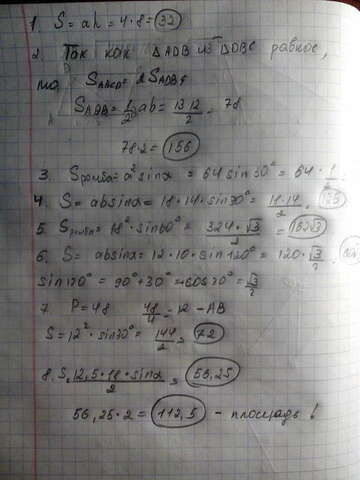 1. S = ah = 4·8 = 32
2. Так как ΔADB из ΔDBC равное,
то S ABCD = 2S ADB,
S ADB = 1/2 ab = 13·12/2 = 78
78·2 = 156
3. S ромба = a² sinα = 64 sin30° = 64·1
4. S = ab sinα = 18·14·sin30° = 18·14/2
5. S ромба = 18²·sin60° = 324·√3/2 = 162√3
6. S = ab sinα = 12·10·sin120° = 120·√3/2
sin120° = 90°+30° = +cos30° = √3/2
7. P = 48 48/4 = 12 - AB
S = 12²·sin30° = 144/2 = 72
8. S = 12,5·18·sinα/2 = 56,25
56,25·2 = 112,5 - площадь!